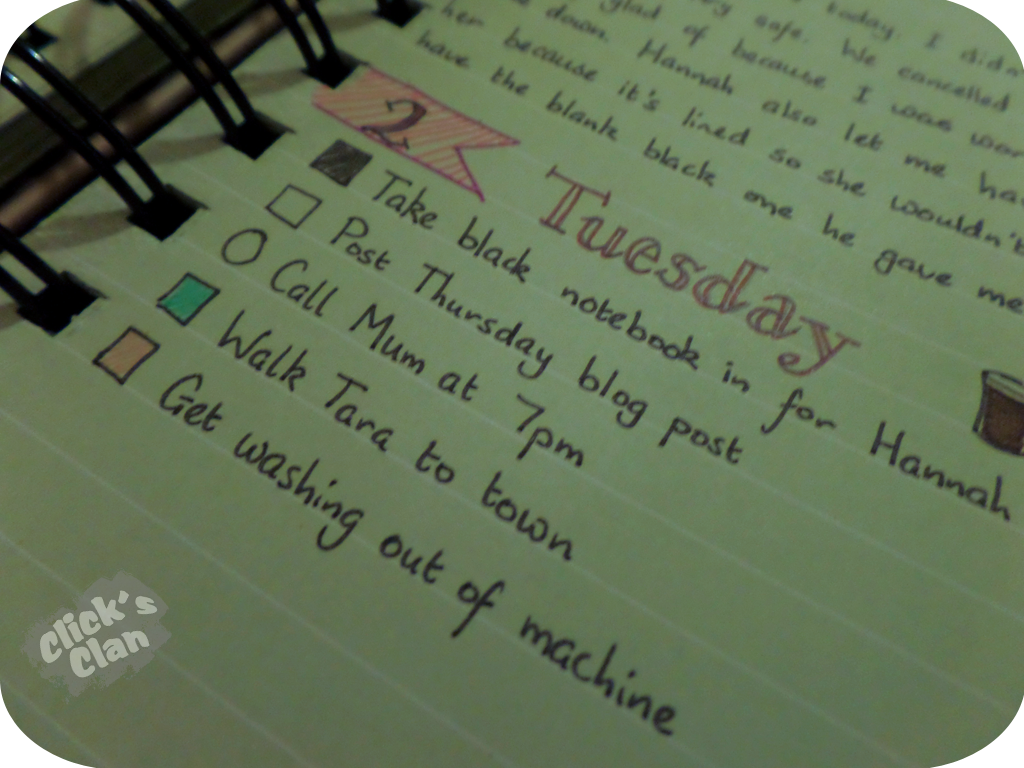 today. I didn't
safe. We cancelled
glad of because I was
down. Hannah also let me
her because it's lined so she wouldn't
have the blank black one he gave me
2 Tuesday
Take black notebook in for Hannah
Post Thursday blog post
Call Mum at 7pm
Walk Tara to town
Get washing out of machine
Click's
Clan